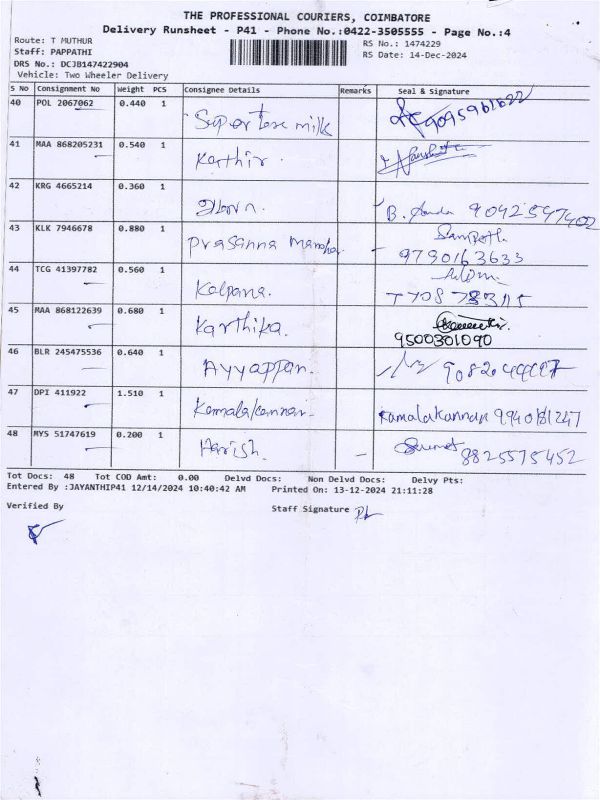 THE PROFESSIONAL COURIERS, COIMBATORE
Delivery Runsheet - P41 - Phone No.:0422-3505555 - Page No.:4
Route: T MUTHUR
RS No.: 1474229
Staff: PAPPATHI
RS Date: 14-Dec-2024
DRS No.: DCJB147422904
Vehicle: Two Wheeler Delivery
S No Consignment No Weight PCS Consignee Details Remarks Seal & Signature
40 POL 2067062 0.440 1 milk 9095961622
41 MAA 868205231 0.540 1 Karthir.
42 KRG 4665214 0.360 1 B. 9042547402
43 KLK 7946678 0.880 1 Prasanna Sampath 9790163633
44 TCG 41397782 0.560 1 Kalpana.
45 MAA 868122639 0.680 1 Karthika. 9500301090
46 BLR 245475536 0.640 1 Ayyappan.
47 DPI 411922 1.510 1 Kamalakannan Kamalakannan 9940181247
48 MYS 51747619 0.200 1 Harish. - 8825575452
Tot Docs: 48 Tot COD Amt: 0.00 Delvd Docs: Non Delvd Docs: Delvy Pts:
Entered By :JAYANTHIP41 12/14/2024 10:40:42 AM Printed On: 13-12-2024 21:11:28
Verified By Staff Signature